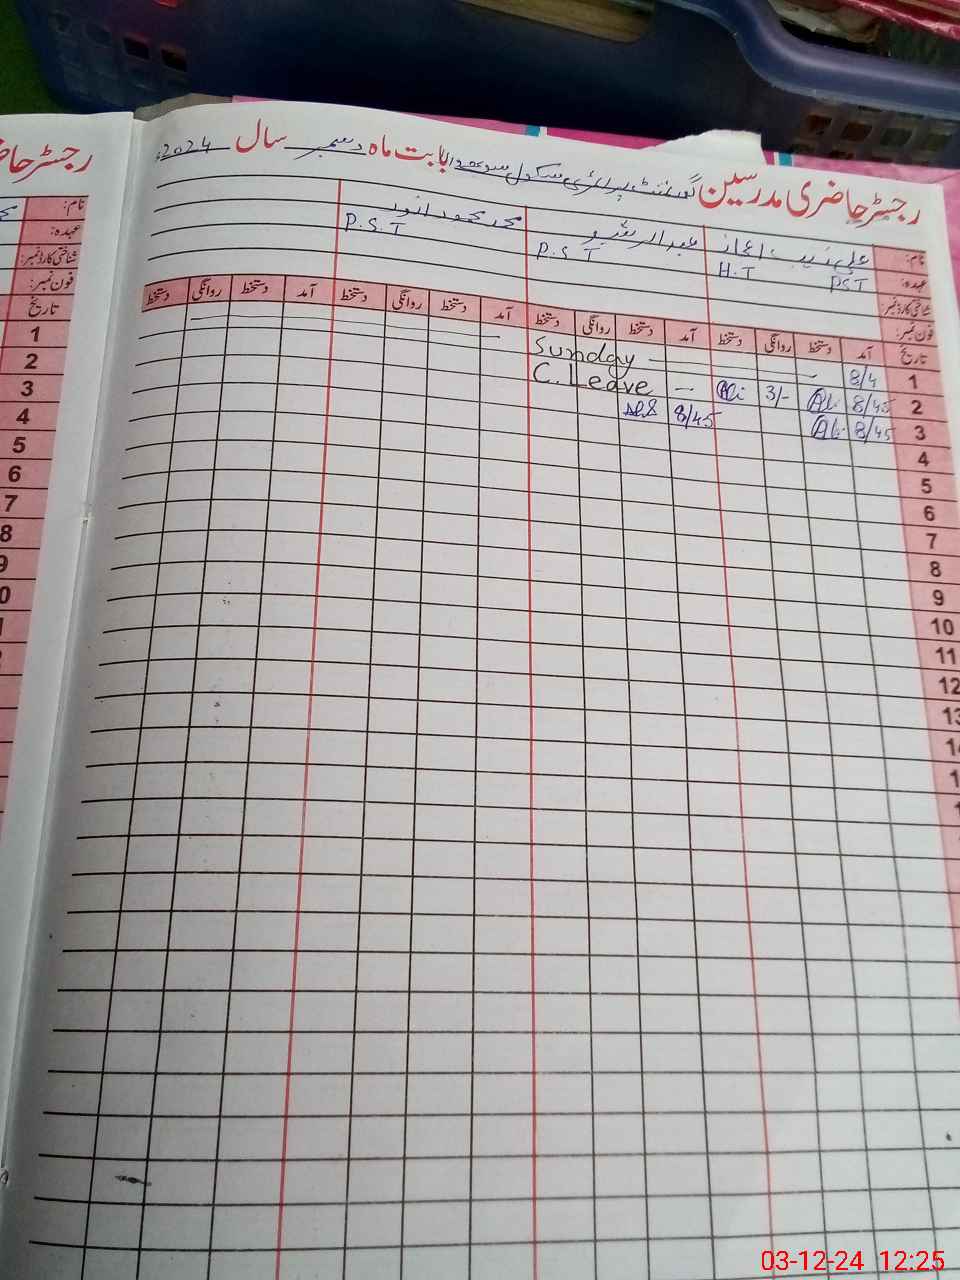 رجسٹر حاضری مدرسین گورنمنٹ پرائمری سکول بابت ماہ دسمبر سال 2024ء
نام: علی زیب اعجاز عبدالرشید محمد محمود انور
عہدہ: PST H.T P.S.T P.S.T
شناختی کارڈ نمبر:
فون نمبر:
تاریخ آمد دستخط روانگی دستخط آمد دستخط روانگی دستخط آمد دستخط روانگی دستخط آمد دستخط روانگی دستخط
1 8/4 Sunday
2 8/45 3/- C. Leave
3 8/45 8/45
4
5
6
7
8
9
10
11
12
13
رجسٹر حاضری
نام:
عہدہ:
شناختی کارڈ نمبر:
فون نمبر:
تاریخ
1
2
3
4
5
6
7
8
9
0
03-12-24 12:25